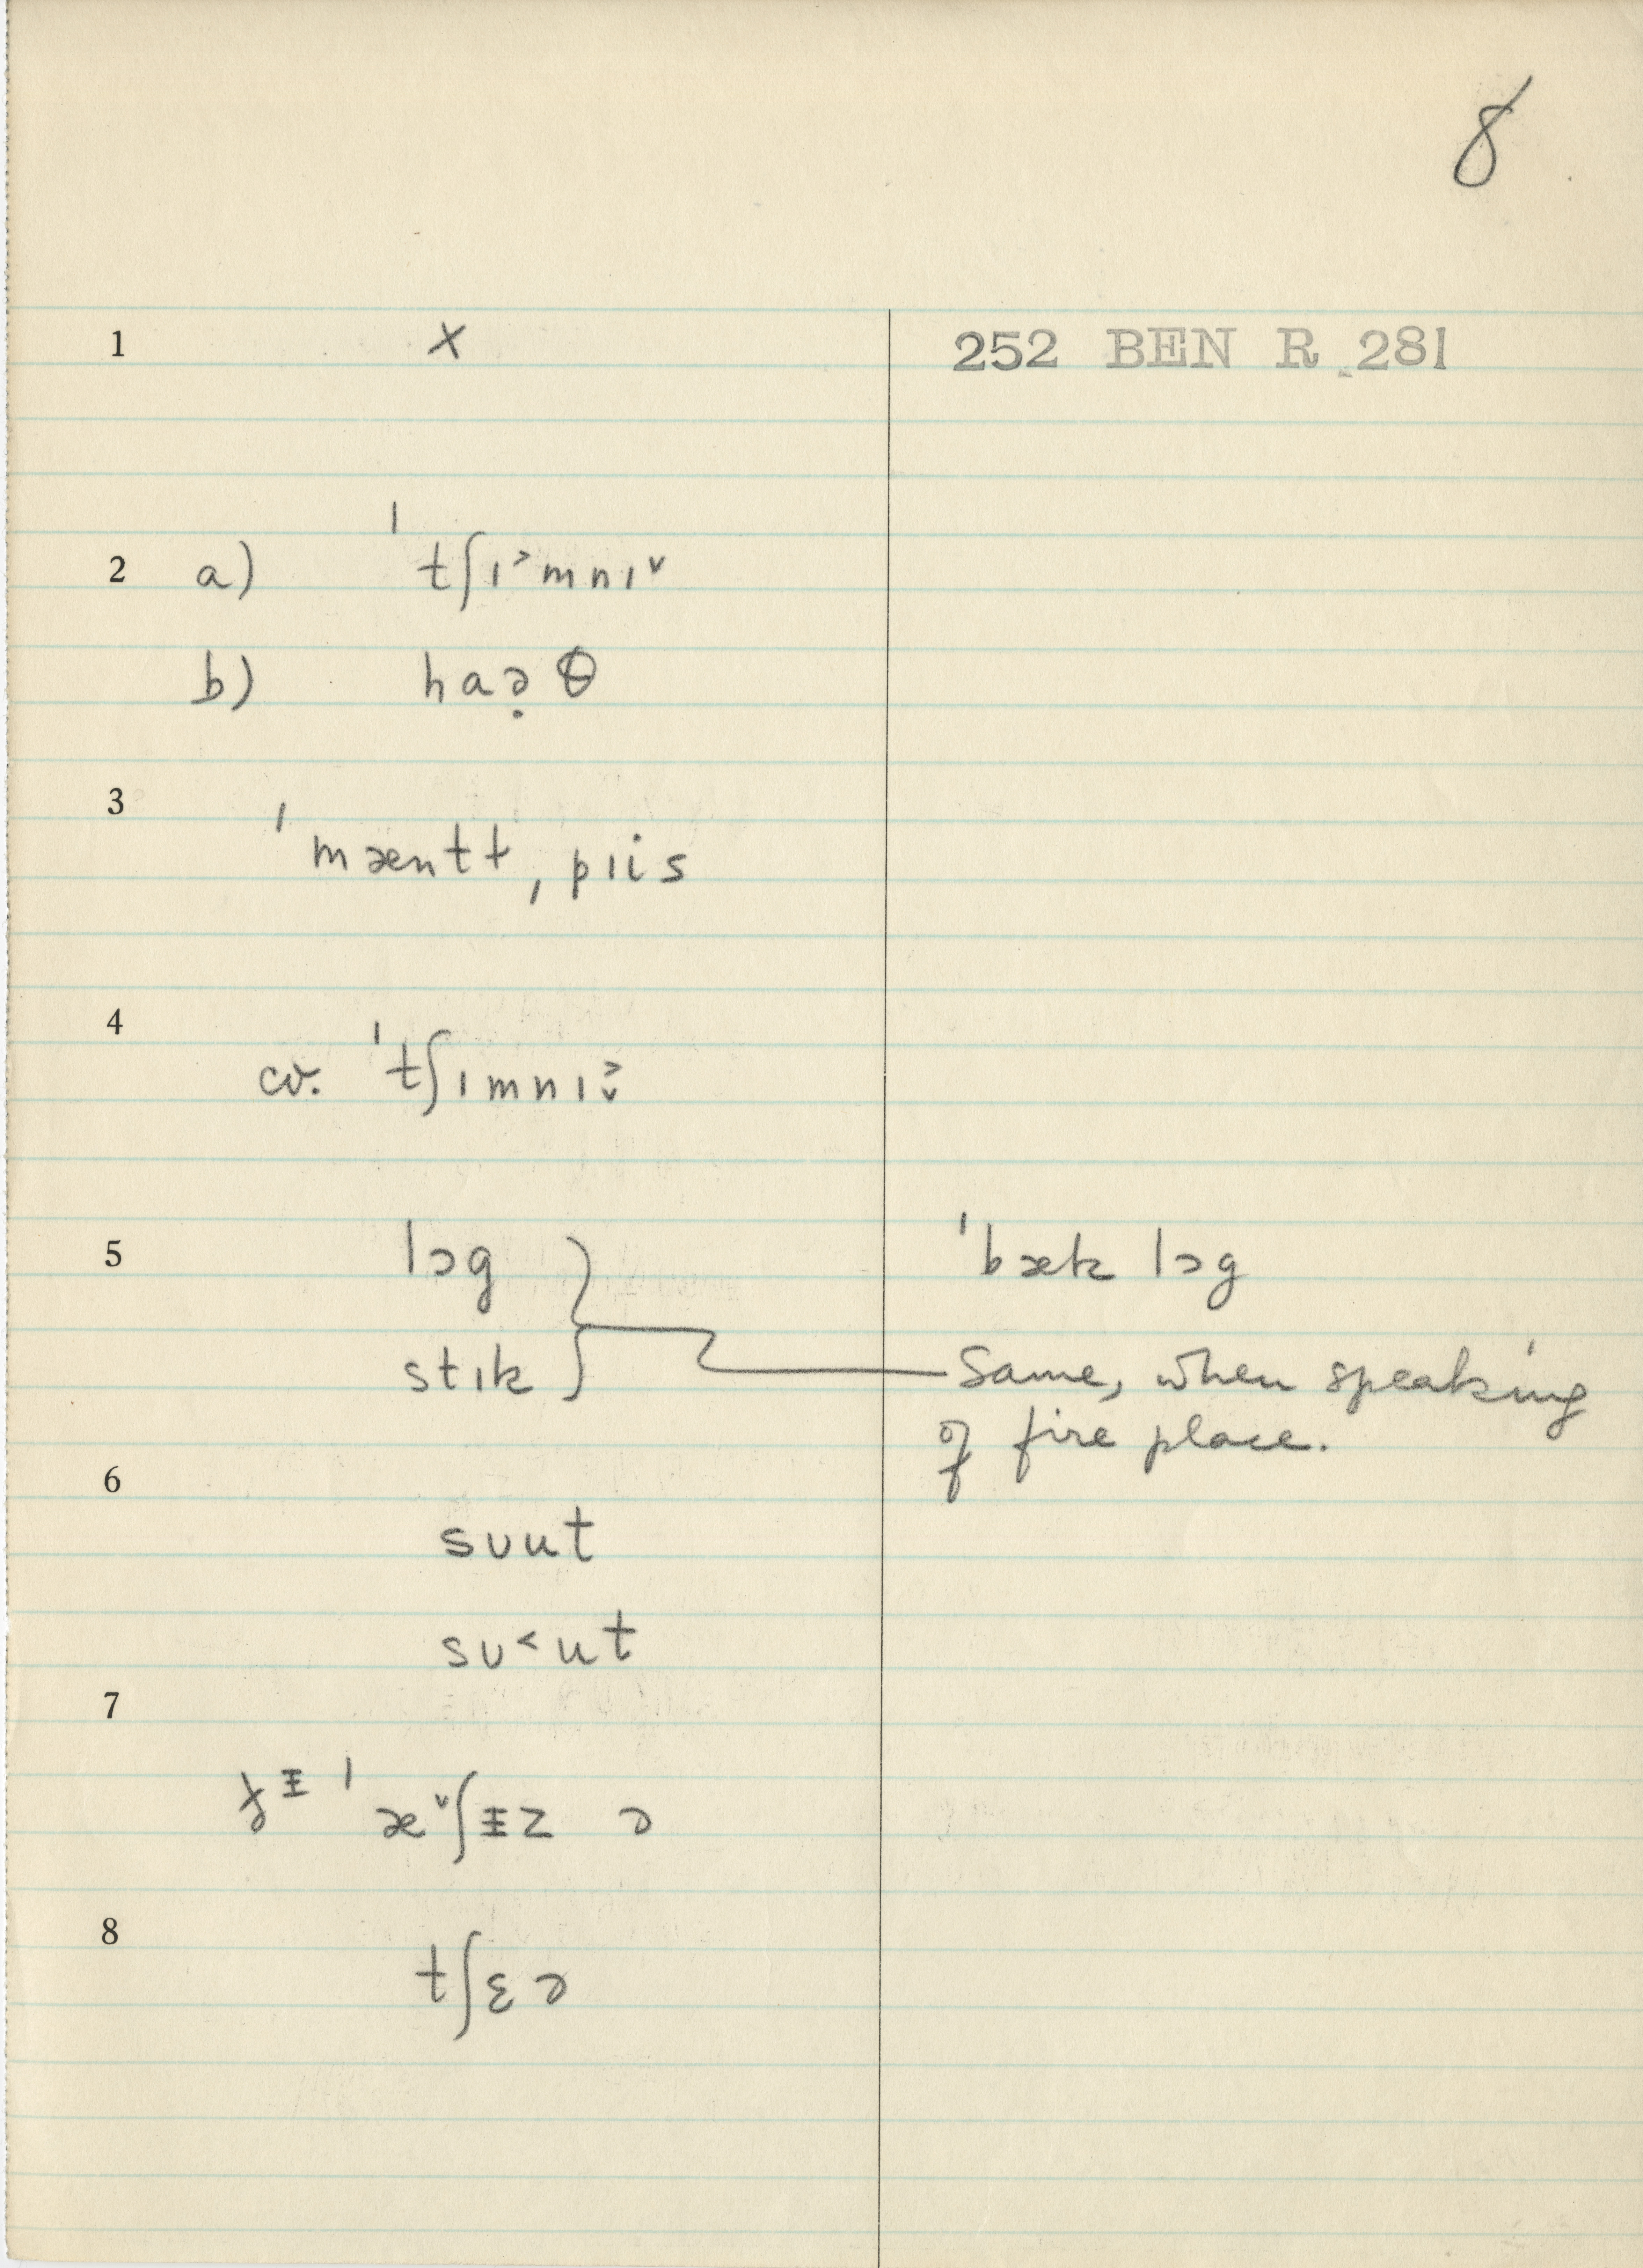 8
1 x 252 BEN R 281
2 a) ˈtʃɪ˃mnɪ˅
b) haə̣θ
3
ˈmæntɫ, pɪis
4
cv. ˈtʃɪmnɪ˃˅
5 lɔg ˈbæk lɔg
stɪk Same, when speaking
of fire place.
6
sʊut
sʊ˂ut
7
ˈæ˅ʃɨz ə
8
tʃɛə